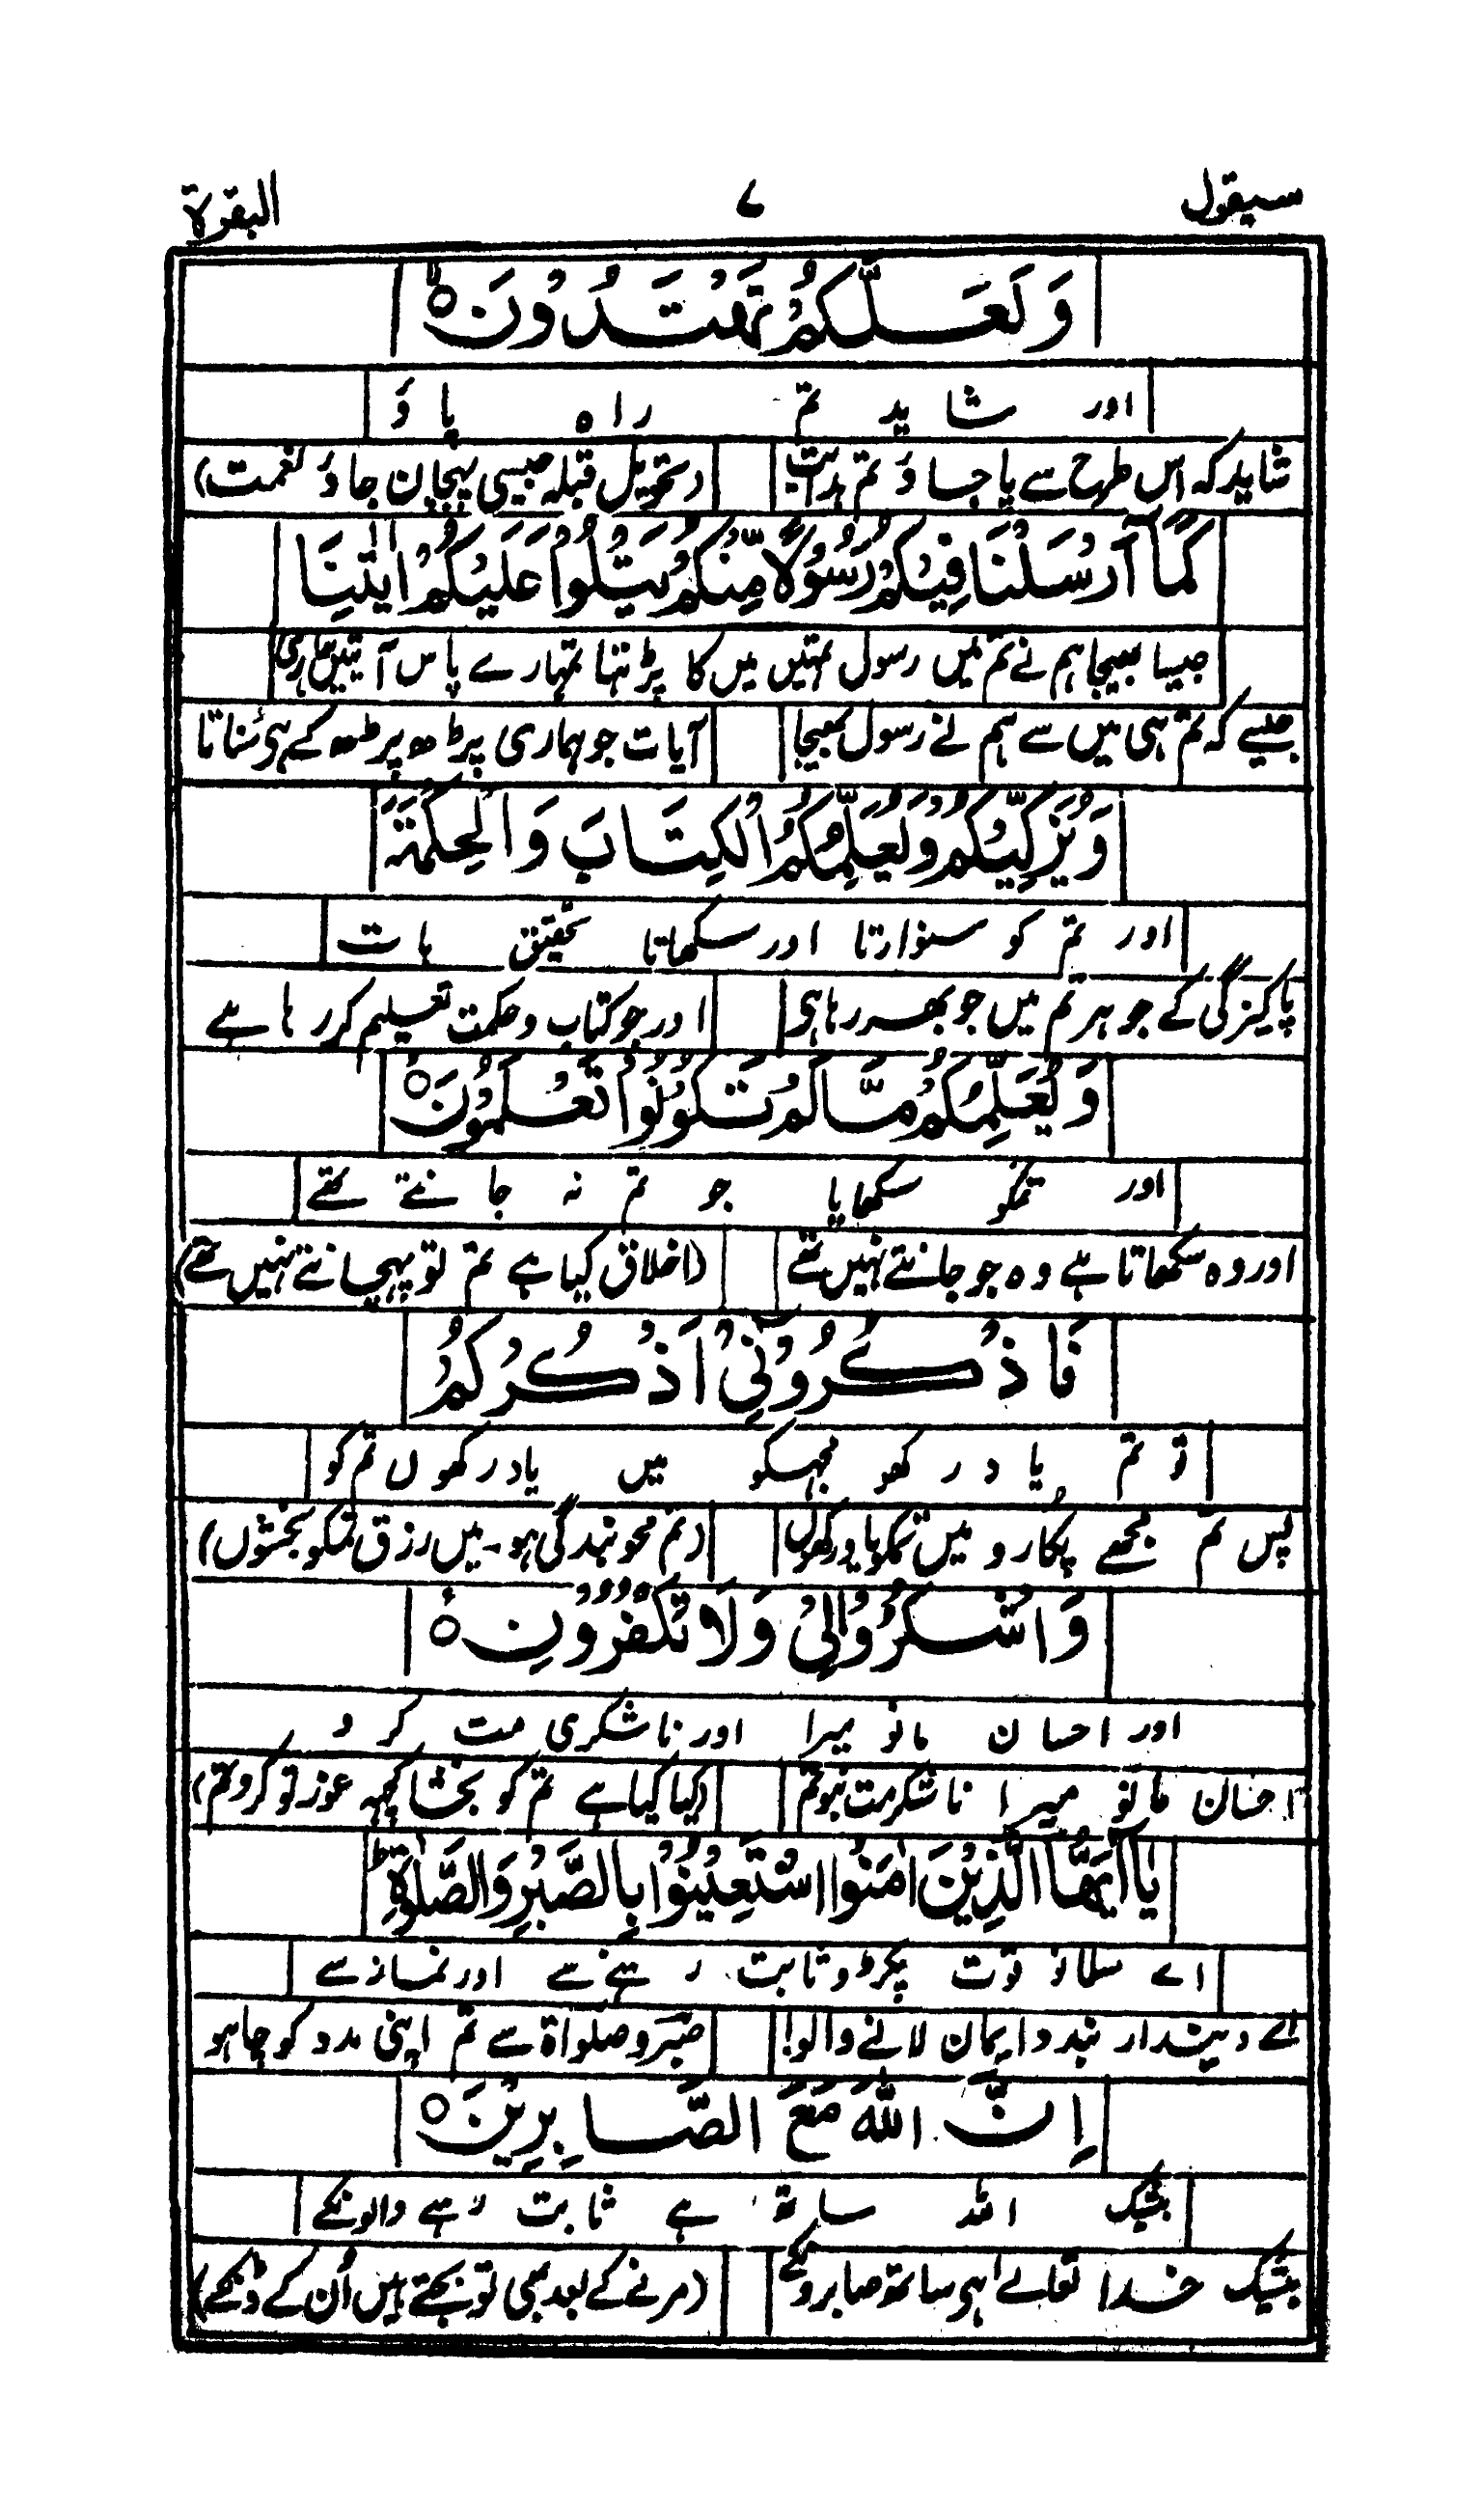 سیقول ۷ البقرة
وَلَعَلَّكُمْ تَهْتَدُوْنَ ۙ
اور شاید تم راہ پاؤ
شاید کہ اس طرح سے پا جاؤ تم ہدایت (تحویل قبلہ جیسی پہچان جاؤ نعمت)
كَمَآ اَرْسَلْنَا فِيْكُمْ رَسُوْلًا مِّنْكُمْ يَتْلُوْا عَلَيْكُمْ اٰيٰتِنَا
جیسا بھیجا ہم نے تم میں رسول تمہیں میں کا پڑھتا تمہارے پاس آیتیں ہماری
جیسے کہ تم ہی میں سے ہم نے رسول بھیجا آیات جو ہماری پڑھ پڑھ کے ہے سناتا
وَيُزَكِّيْكُمْ وَيُعَلِّمُكُمُ الْكِتَابَ وَالْحِكْمَةَ
اور تم کو سنوارتا اور سکھاتا تحقیق بات
پاکیزگی کے جوہر تم میں جو بھر رہا ہی اور جو کتاب و حکمت تعلیم کر رہا ہے
وَيُعَلِّمُكُمْ مَّا لَمْ تَكُوْنُوْا تَعْلَمُوْنَ ۙ
اور تمکو سکھایا جو تم نہ جانتے تھے
اور وہ سکھاتا ہے وہ جو جانتے نہیں تھے (اخلاق کیا ہے تم تو پہچانتے نہیں تھے)
فَاذْكُرُوْنِيْٓ اَذْكُرْكُمْ
تو تم یاد رکھو مجھکو میں یاد رکھوں تم کو
پس تم مجھے پکارو میں تمکو یاد رکھوں (تم محو بندگی ہو۔ میں رزق تمکو بخشوں)
وَاشْكُرُوْا لِيْ وَلَا تَكْفُرُوْنِ ۠
اور احسان مانو میرا اور ناشکری مت کرو
احسان مانو میرا ناشکر مت بنو تم (کیا کیا ہے تم کو بخشا کچھ غور تو کرو تم)
يٰٓاَيُّهَا الَّذِيْنَ اٰمَنُوا اسْتَعِيْنُوْا بِالصَّبْرِ وَالصَّلٰوةِ ؕ
اے مسلمانو قوت پکڑو ثابت رہنے سے اور نماز سے
اے دیندار بندو ایمان لانے والو! صبر و صلواۃ سے تم اپنی مدد کو چاہو
اِنَّ اللّٰهَ مَعَ الصَّابِرِيْنَ ۝
بیشک اللہ ساتھ ہے ثابت رہنے والونکے
بیشک خدا تعالےٰ ہی ساتھ صابرونکے (مرنے کے بعد بھی تو بجتے ہیں اُن کے ڈنکے)